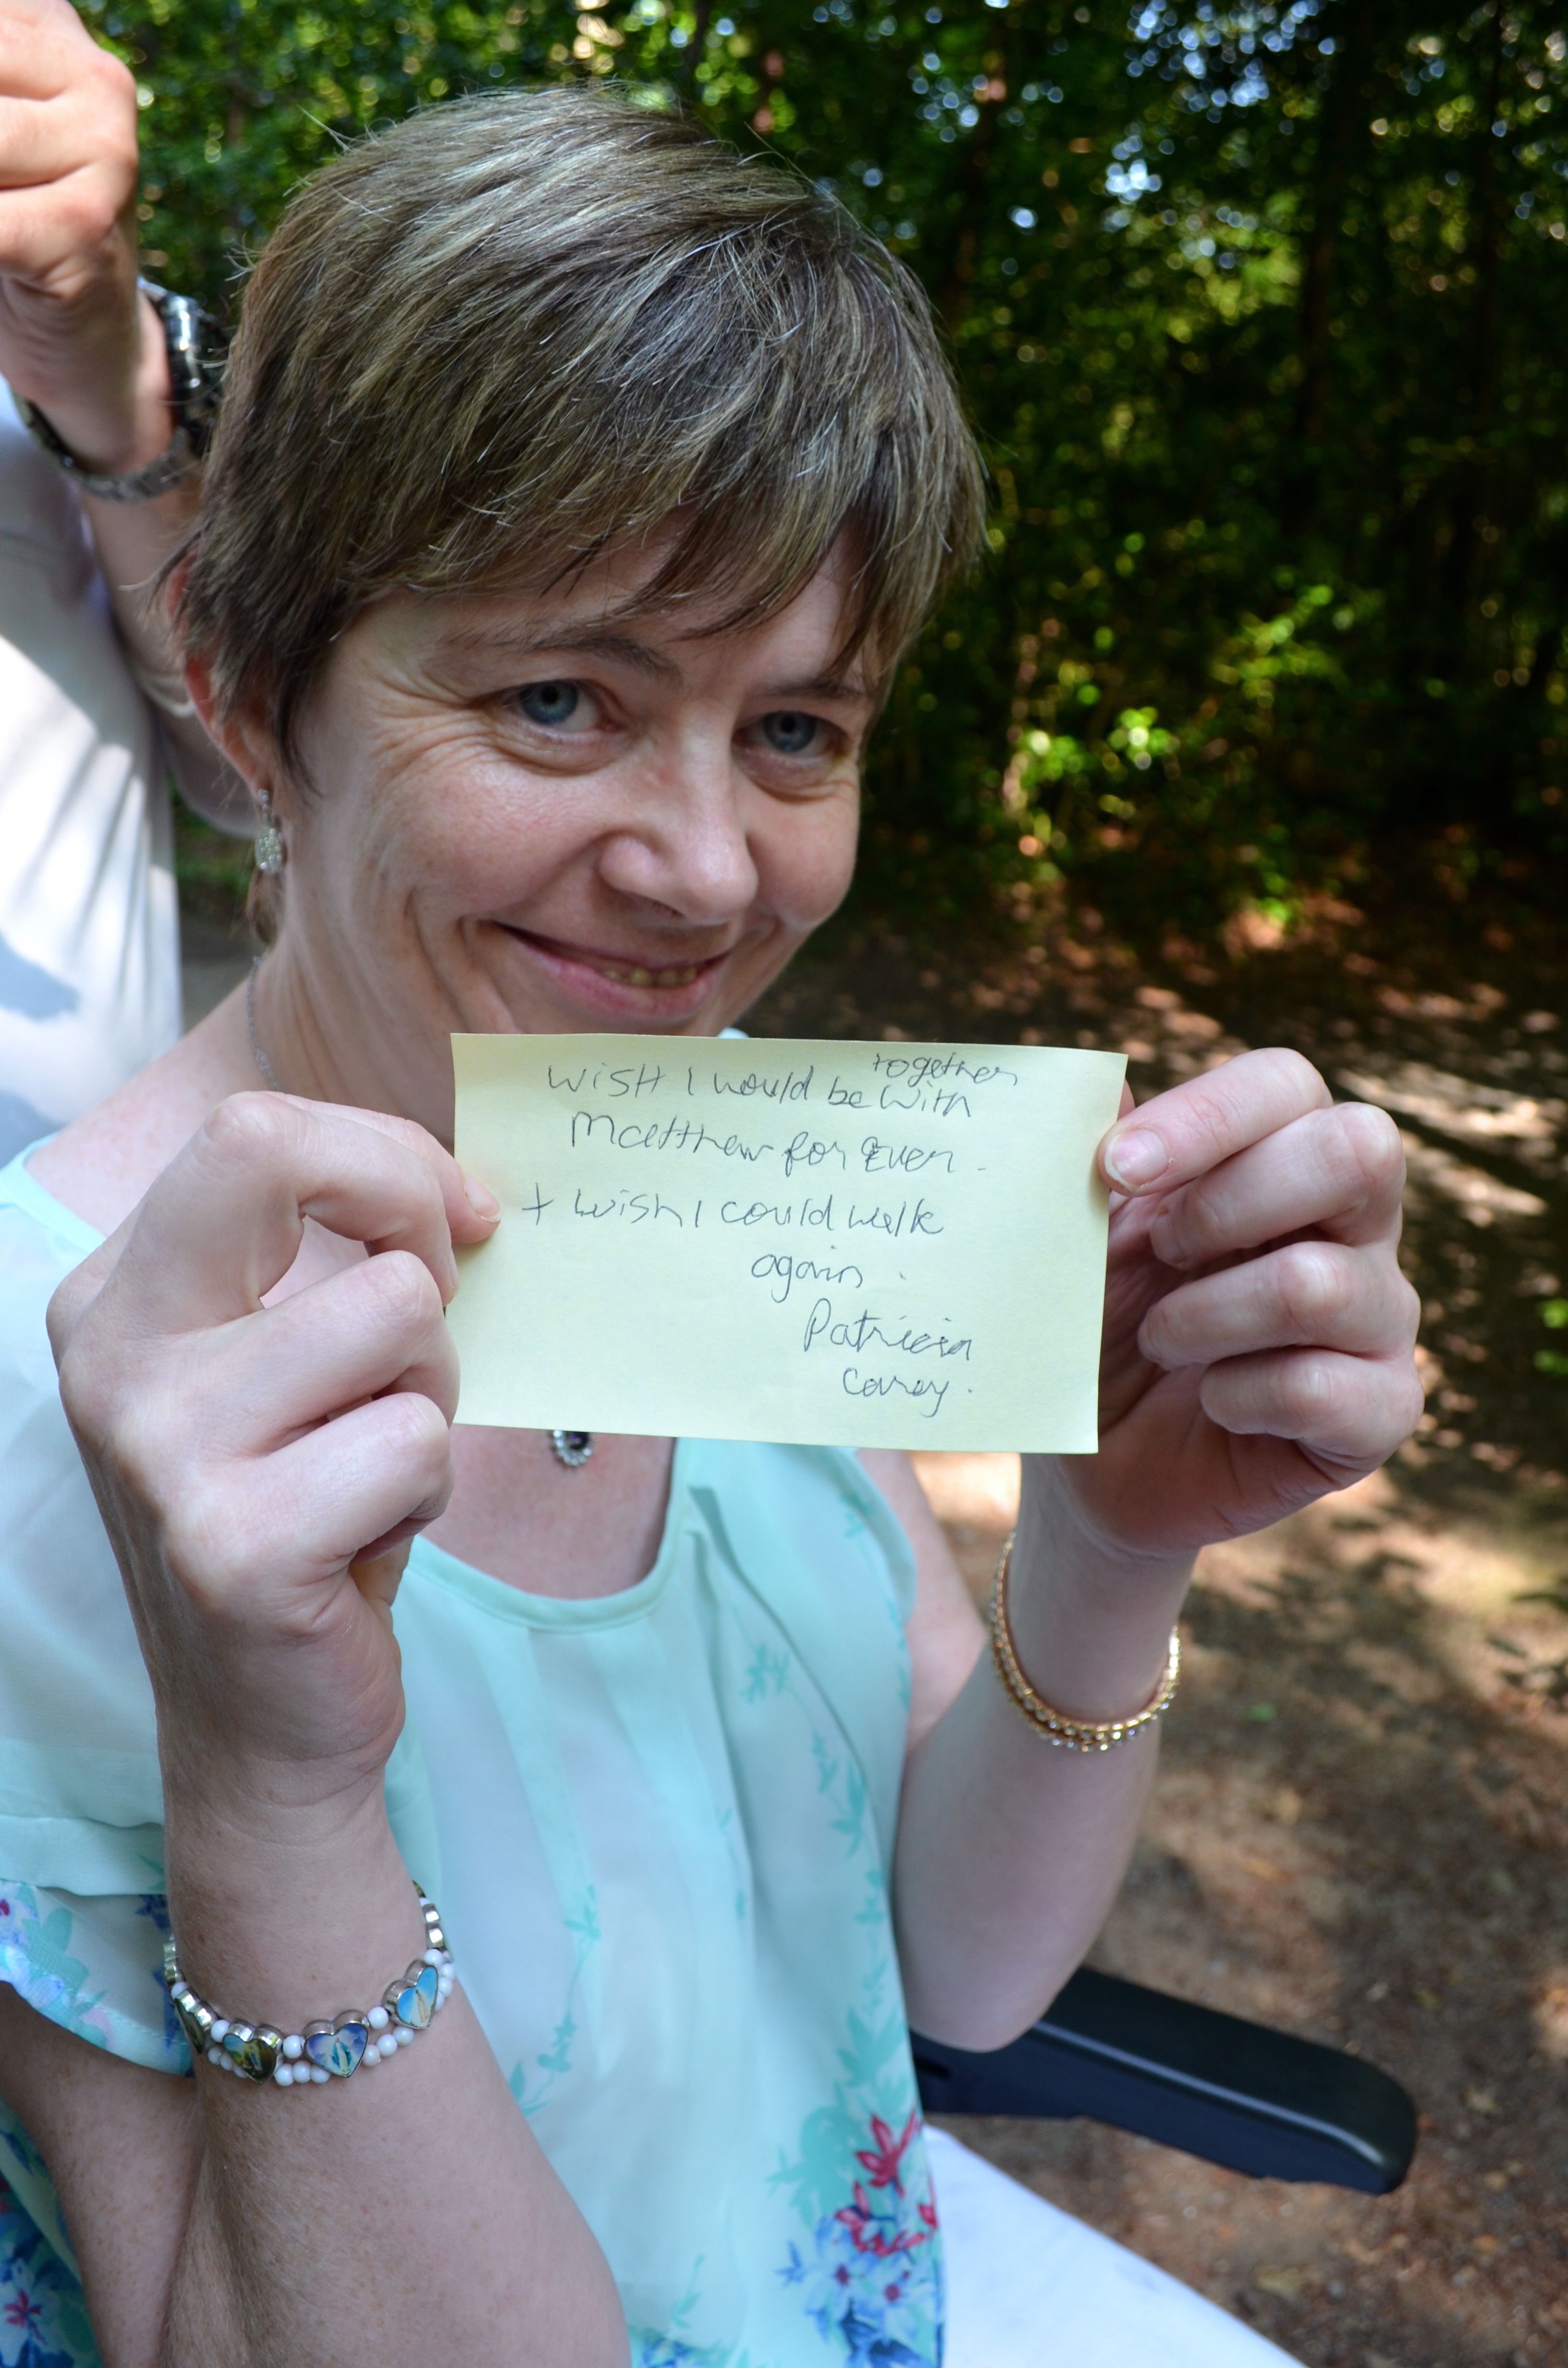 together
WISH I would be with
Matthew for Ever.
+ wish I could walk
again.
Patricia
Carey.